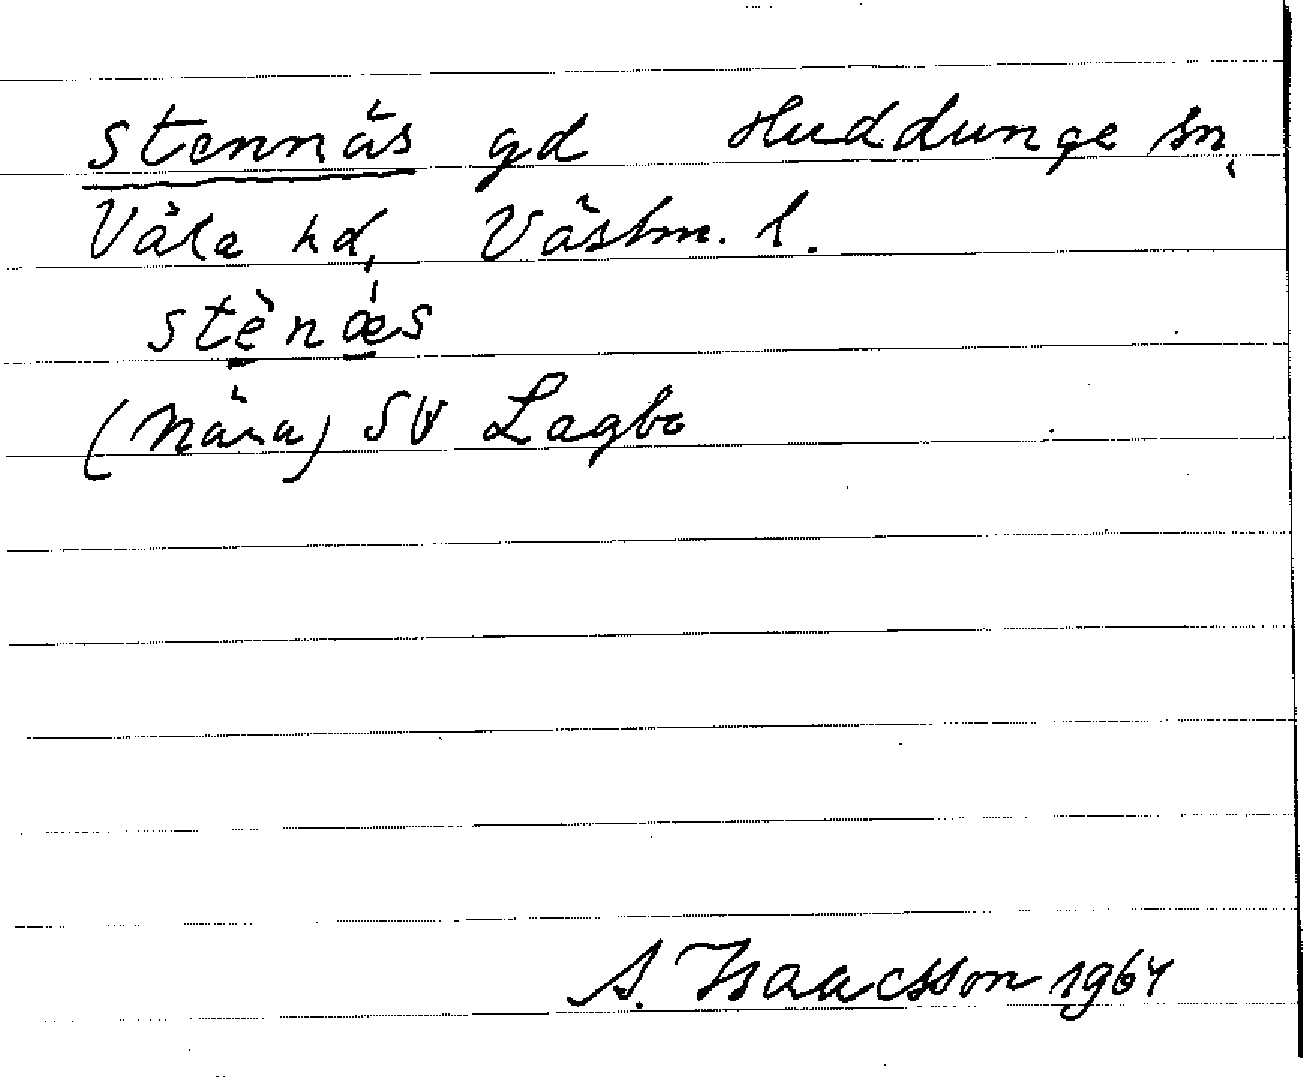 Stennäs gd Huddunge sn,
Våla hd, Västm. l.
stènǽs
(Nära) SV Lagbo
A. Isaacsson 1964